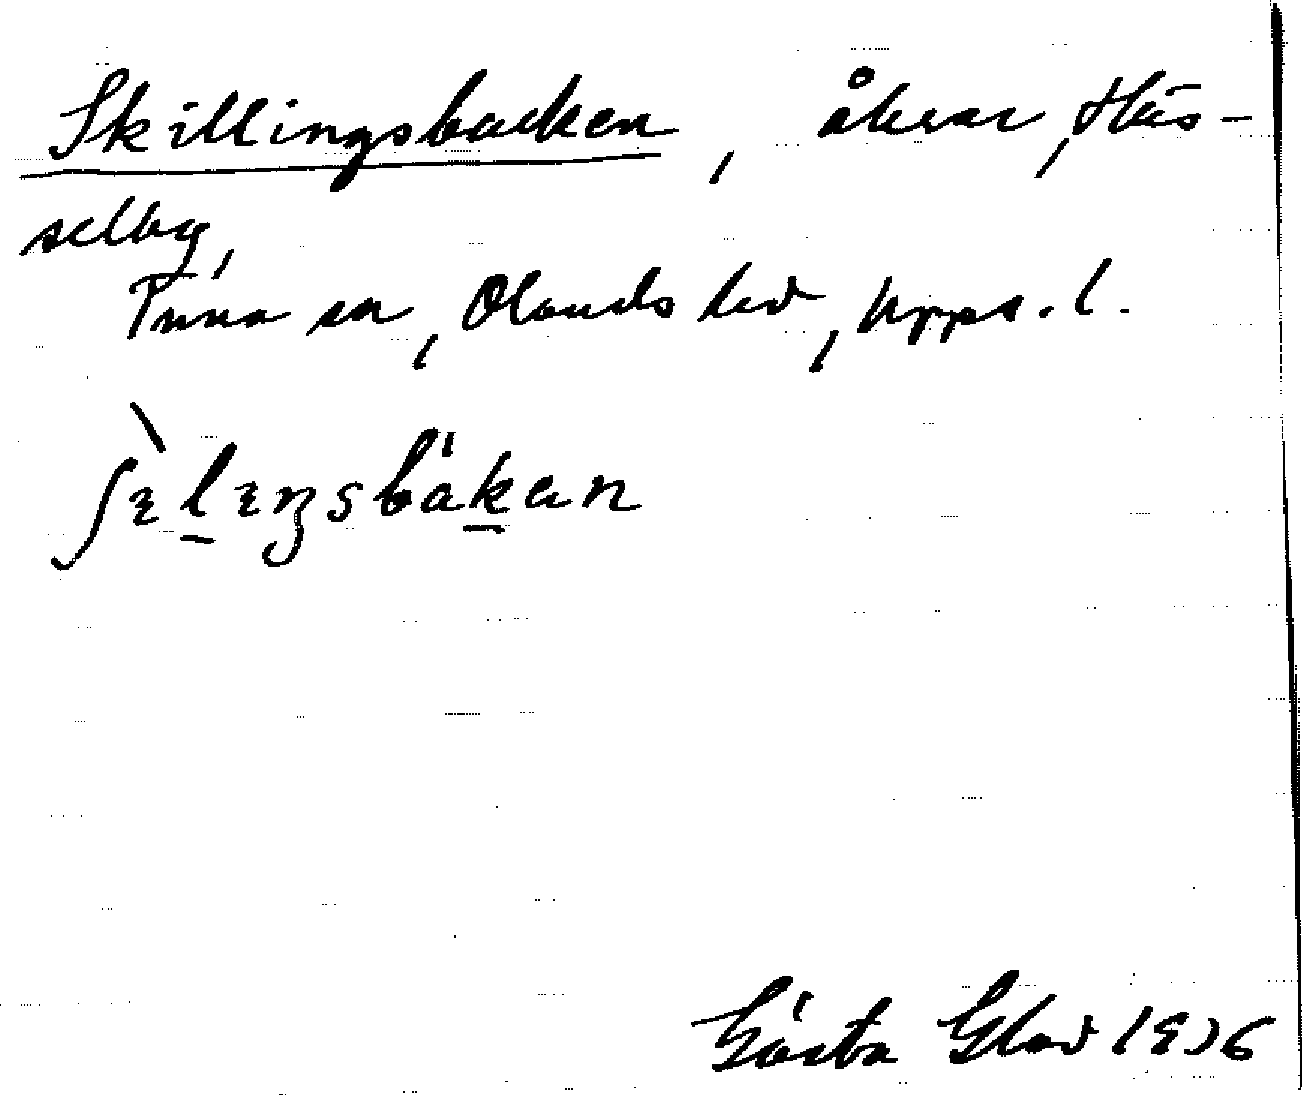 Skillingsbacken, åkrar, Häs-
selby,
Tuna sn, Olands hd, Upps. l.
ʃìlıŋsbákan
Gösta Glad 1936